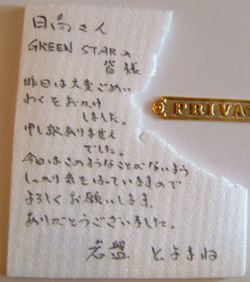 日高さん
GREEN STARの
皆様
昨日は大変ごめい
わくをおかけ
しました。
申し訳ありません
でした。
今日はこのようなことがないよう
しっかり気をはっていますので
よろしくお願いします。
ありがとうございました。
岩盤 ともまね
PRIVA